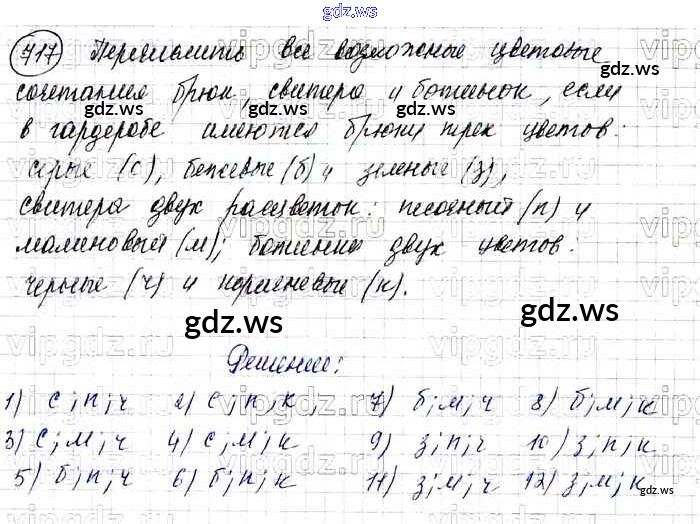 gdz.ws
717 Перечислить все возможные цветовые
сочетания брюк, свитера и ботинок, если
в гардеробе имеются брюки трех цветов:
серые (с), бежевые (б) и зеленые (з),
свитера двух расцветок: песочный (п) и
малиновый (м); ботинки двух цветов:
черные (ч) и коричневые (к).
gdz.ws
Решение:
1) с; п; ч 2) с; п; к 7) б; м; ч 8) б; м; к
3) с; м; ч 4) с; м; к 9) з; п; ч 10) з; п; к
5) б; п; ч 6) б; п; к 11) з; м; ч 12) з; м; к
gdz.ws